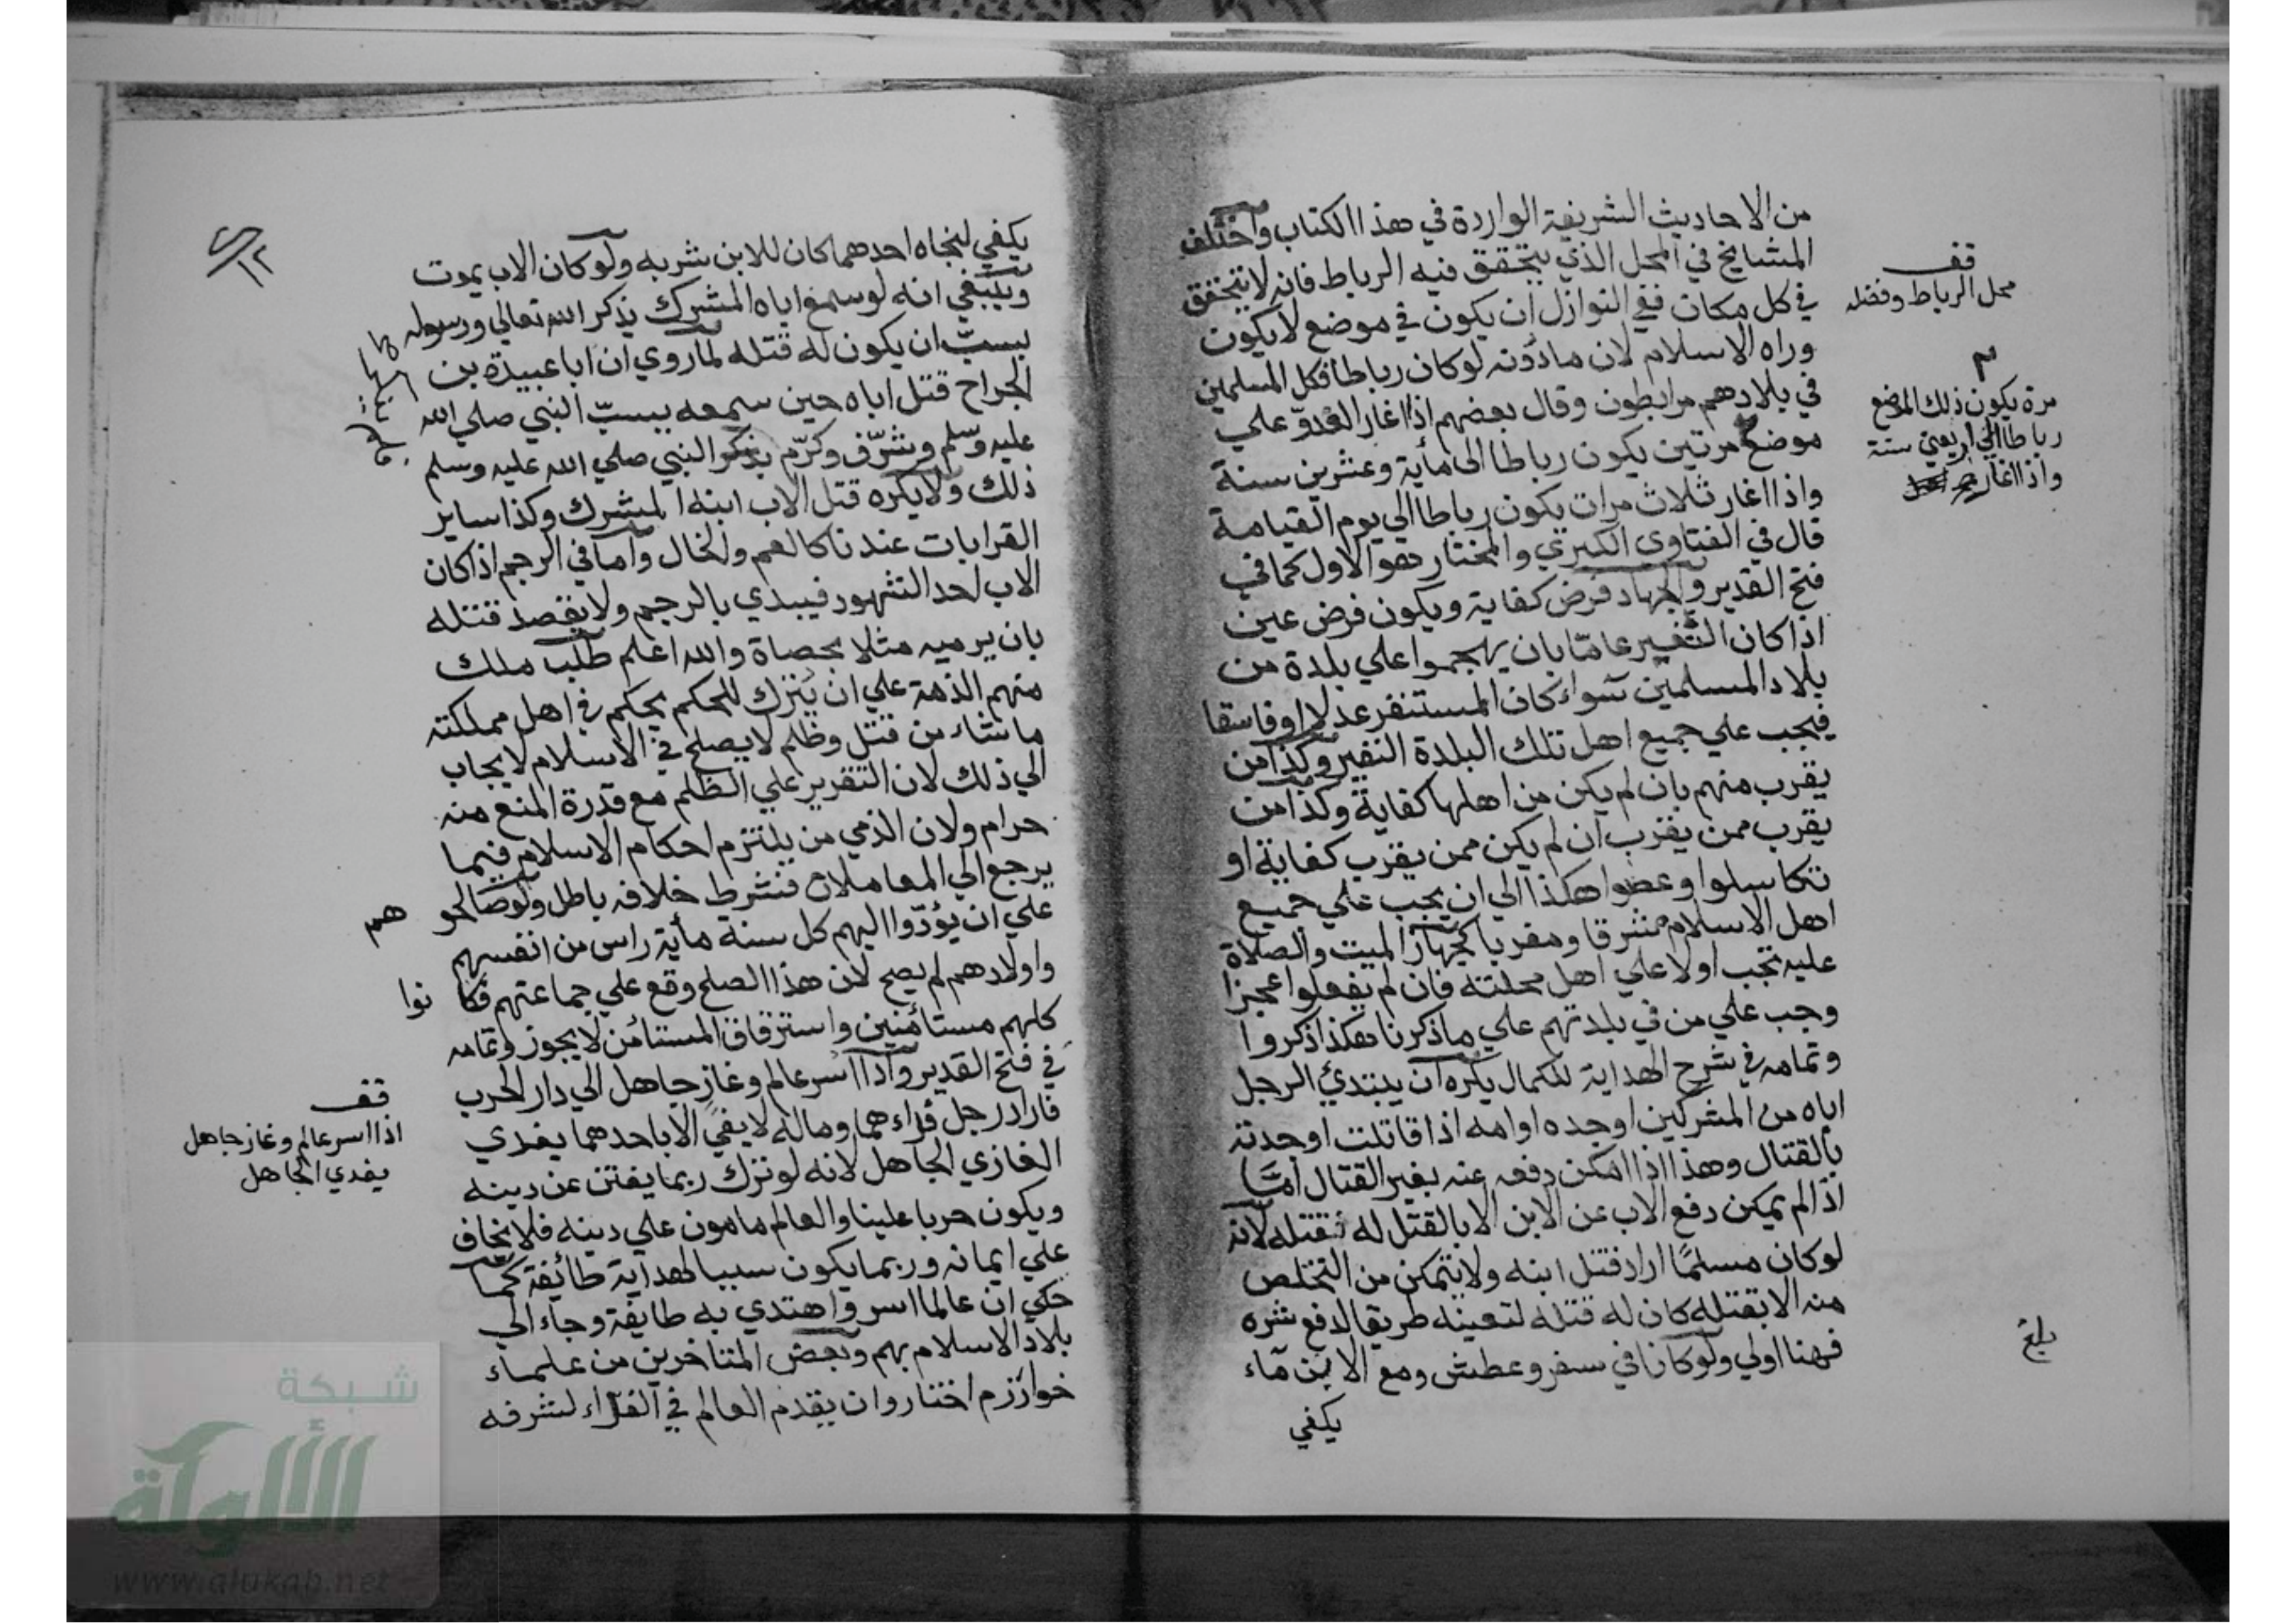 من الاحاديث الشريفة الواردة في هذا الكتاب واختلف
المشايخ في المحل الذي يتحقق فيه الرباط فانه لا يتحقق
في كل مكان ففي النوازل ان يكون في موضع لا يكون
وراه الاسلام لان مادونه لوكان رباطا فكل المسلمين
في بلادهم مرابطون وقال بعضهم اذا اغار العدوّ علي
موضع مرتين يكون رباطا الى مأية وعشرين سنة
واذا اغار ثلاث مرات يكون رباطا الي يوم القيامة
قال في الفتاوى الكبري والمختار هو الاول كما في
فتح القدير والجهاد فرض كفاية ويكون فرض عين
اذا كان النفير عامّا بان يهجموا علي بلدة من
بلاد المسلمين سواء كان المستنفر عدلا او فاسقا
فيجب علي جميع اهل تلك البلدة النفير وكذا من
يقرب منهم بان لم يكن من اهلها كفاية وكذا من
يقرب ممن يقرب ان لم يكن ممن يقرب كفاية او
تكاسلوا وعصوا هكذا الي ان يجب علي جميع
اهل الاسلام مشرقا ومغربا كجهاز الميت والصلاة
عليه تجب اولا علي اهل محلته فان لم يفعلوا عجزا
وجب علي من في بلدتهم علي ما ذكرنا هكذا ذكروا
وتمامه في شرح الهداية للكمال يكره ان يبتدئ الرجل
اباه من المشركين او جده او امه اذا قاتلت او جدته
بالقتال وهذا اذا امكن دفعه عنه بغير القتال امّا
اذا لم يمكن دفع الاب عن الابن الا بالقتل له فقتله لانه
لو كان مسلمًا اراد قتل ابنه ولا يتمكن من التخلص
منه الا بقتله كان له قتله لتعينه طريقا لدفع شره
فهنا اولي ولو كانا في سفر وعطش ومع الابن مآء
يكفي
قف
محل الرباط وفضله
م
مرة يكون ذلك الموضع
رباطا الي اربعين سنة
واذا اغار
بلغ
يكفي لنجاه احدهما كان للابن شربه ولو كان الاب يموت
وينبغي انه لو سمع اباه المشرك يذكر الله تعالي ورسوله
بسبّ ان يكون له قتله لما روي ان ابا عبيدة بن
الجراح قتل اباه حين سمعه يسبّ النبي صلي الله
عليه وسلم وشرّف وكرّم بذكر النبي صلي الله عليه وسلم
ذلك ولا يكره قتل الاب ابنه المشرك وكذا ساير
القرابات عندنا كالعم والخال واما في الرجم اذا كان
الاب احد الشهود فيبدي بالرجم ولا يقصد قتله
بان يرميه مثلا بحصاة والله اعلم طلب ملك
منهم الذمة علي ان يُترك للحكم يحكم في اهل مملكته
ما شاء من قتل وظلم لا يصلح في الاسلام لا يجاب
الي ذلك لان التقرير علي الظلم مع قدرة المنع منه
حرام ولان الذمي من يلتزم احكام الاسلام فيما
يرجع الي المعاملات فشرط خلافه باطل ولو صالحو هم
علي ان يؤدّوا اليهم كل سنة مأية راس من انفسهم
واولادهم لم يصح لان هذا الصلح وقع علي جماعتهم فكا نوا
كلهم مستأمنين واسترقاق المستأمن لا يجوز وتمامه
في فتح القدير واذا اسر عالم وغاز جاهل الي دار الحرب
فاراد رجل فداءهما وماله لا يفي الا باحدهما يفدي
الغازي الجاهل لانه لو ترك ربما يفتن عن دينه
ويكون حربا علينا والعالم مامون علي دينه فلا يخاف
علي ايمانه وربما يكون سببا لهداية طائفة كما
حكي ان عالما اسر واهتدي به طايفة وجاء الي
بلاد الاسلام بهم وبعض المتاخرين من علماء
خوارزم اختاروا ان يقدم العالم في الفداء لشرفه
قف
اذا اسر عالم وغاز جاهل
يفدي الجاهل
شبكة
الألوكة
www.alukah.net